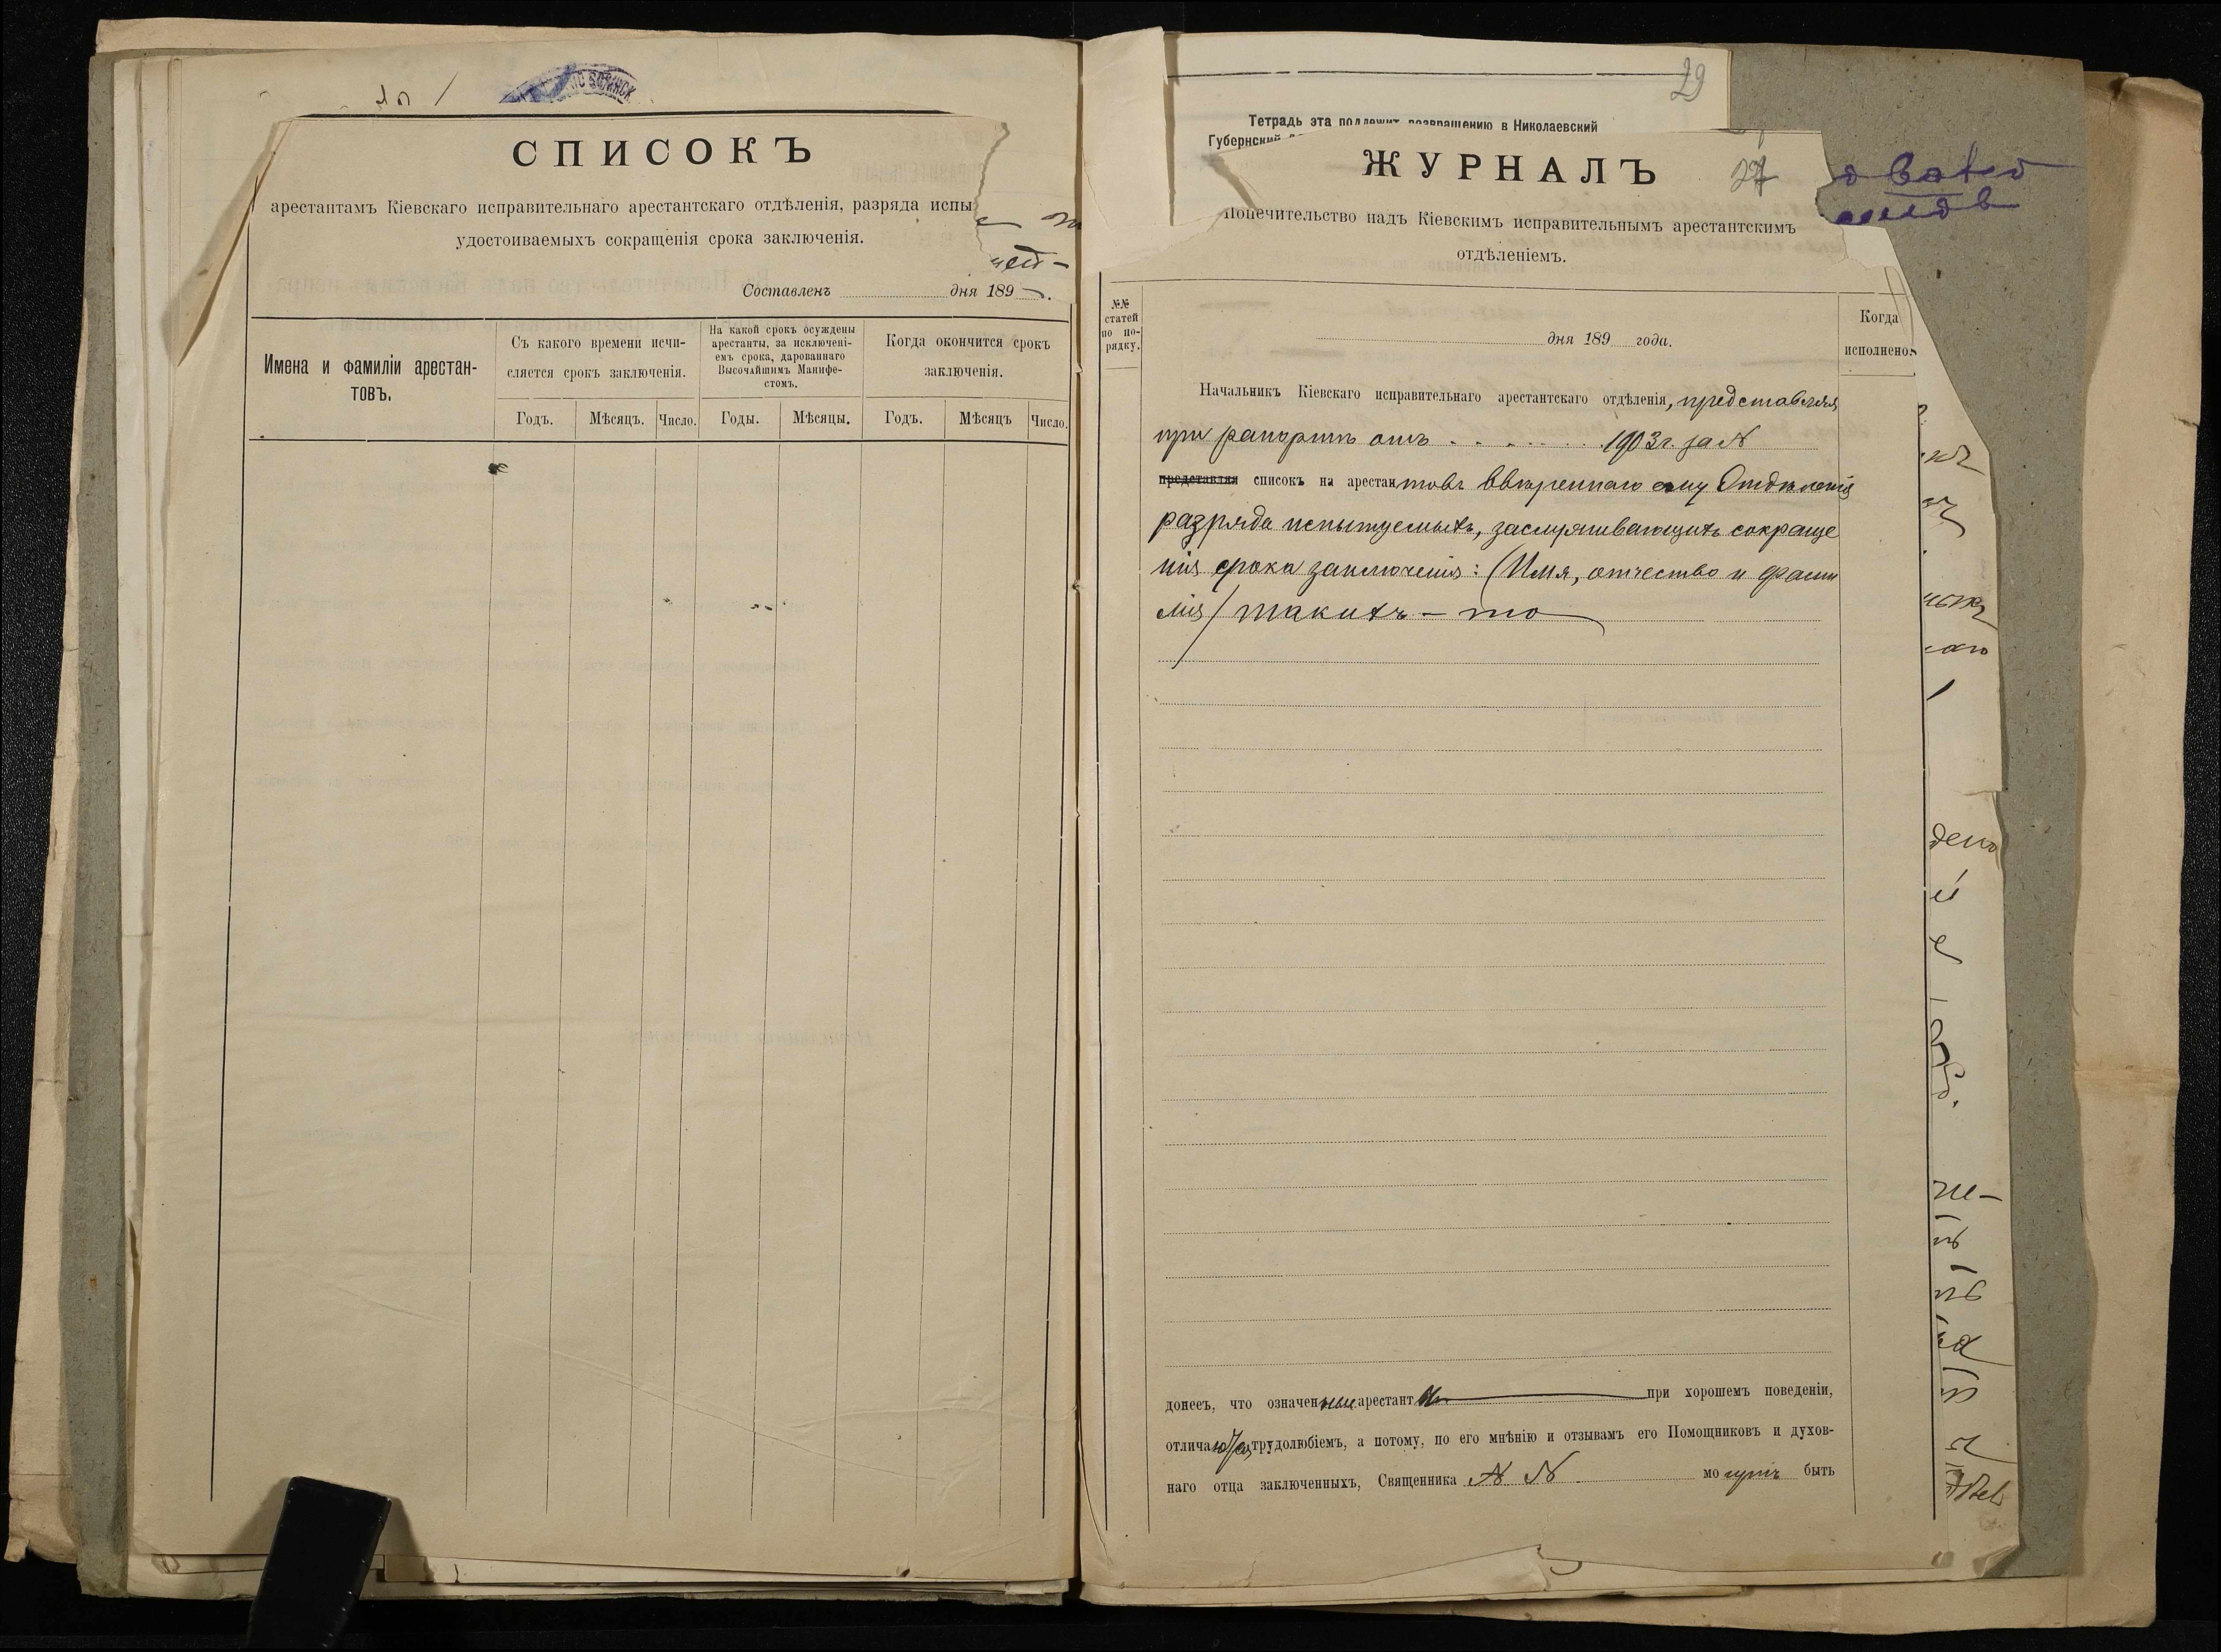 СПИСОКЪ
арестантамъ Кіевскаго исправительнаго арестантскаго отдѣленія, разряда испы
удостоиваемыхъ сокращенія срока заключенія.
Составленъ дня 189 .
Имена и фамиліи арестан-
товъ.
Съ какого времени исчи-
сляется срокъ заключенія.
На какой срокъ осуждены
арестанты, за исключені-
емъ срока, дарованнаго
Высочайшимъ Манифе-
стомъ.
Когда окончится срокъ
заключенія.
Годъ. Мѣсяцъ. Число. Годы. Мѣсяцы. Годъ. Мѣсяцъ Число.
29
Тетрадь эта подлежит возвращению в Николаевский
Губернский
ЖУРНАЛЪ
27
Попечительство надъ Кіевскимъ исправительнымъ арестантскимъ
отдѣленіемъ.
№№
статей
по по-
рядку.
дня 189 года.
Когда
исполнено.
Начальникъ Кіевскаго исправительнаго арестантскаго отдѣленія, представляя
при рапортѣ отъ . . . . . . . 1903 г. за №
представляя списокъ на арестантовъ ввѣреннаго ему Отдѣленія
разряда испытуемыхъ, заслуживающихъ сокраще
нія срока заключенія: (Имя, отчество и фами
лія) такихъ - то
донесъ, что означенные арестанты при хорошемъ поведеніи,
отличаются трудолюбіемъ, а потому, по его мнѣнію и отзывамъ его Помощниковъ и духов-
наго отца заключенныхъ, Священника N N могутъ быть